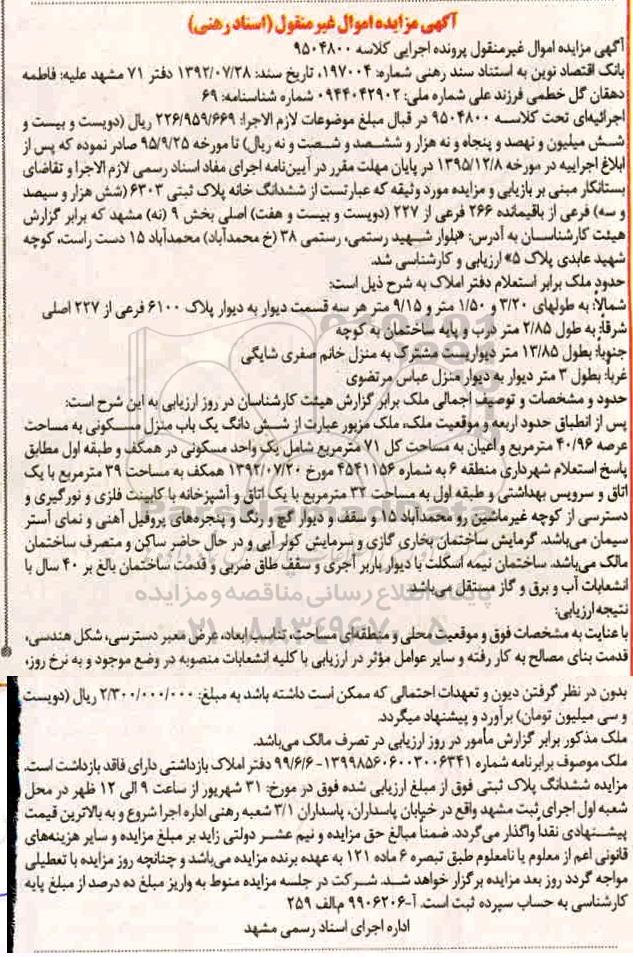 آگهی مزایده اموال غیر منقول (اسناد رهنی)
آگهی مزایده اموال غیرمنقول پرونده اجرایی کلاسه ۹۵۰۴۸۰۰
بانک اقتصاد نوین به استناد سند رهنی شماره: ۱۹۷۰۰۴، تاریخ سند: ۱۳۹۲/۰۷/۲۸ دفتر ۷۱ مشهد علیه: فاطمه
دهقان گل خطمی فرزند علی شماره ملی: ۰۹۴۴۰۴۲۹۰۲ شماره شناسنامه: ۶۹
اجرائیه‌ای تحت کلاسه ۹۵۰۴۸۰۰ در قبال مبلغ موضوعات لازم الاجرا: ۲۲۶/۹۵۹/۶۶۹ ریال (دویست و بیست و
شش میلیون و نهصد و پنجاه و نه هزار و ششصد و شصت و نه ریال) تا مورخه ۹۵/۹/۲۵ صادر نموده که پس از
ابلاغ اجراییه در مورخه ۱۳۹۵/۱۲/۸ در پایان مهلت مقرر در آیین‌نامه اجرای مفاد اسناد رسمی لازم الاجرا و تقاضای
بستانکار مبنی بر بازیابی و مزایده مورد وثیقه که عبارتست از ششدانگ خانه پلاک ثبتی ۶۳۰۳ (شش هزار و سیصد
و سه) فرعی از باقیمانده ۲۶۶ فرعی از ۲۲۷ (دویست و بیست و هفت) اصلی بخش ۹ (نه) مشهد که برابر گزارش
هیئت کارشناسان به آدرس: «بلوار شهید رستمی، رستمی ۳۸ (خ محمدآباد) محمدآباد ۱۵ دست راست، کوچه
شهید عابدی پلاک ۵» ارزیابی و کارشناسی شد.
حدود ملک برابر استعلام دفتر املاک به شرح ذیل است:
شمالاً: به طولهای ۳/۲۰ و ۱/۵۰ متر و ۹/۱۵ متر هر سه قسمت دیوار به دیوار پلاک ۶۱۰۰ فرعی از ۲۲۷ اصلی
شرقاً: به طول ۲/۸۵ متر درب و پایه ساختمان به کوچه
جنوباً: بطول ۱۳/۸۵ متر دیواریست مشترک به منزل خانم صفری شایگی
غرباً: بطول ۳ متر دیوار به دیوار منزل عباس مرتضوی
حدود و مشخصات و توصیف اجمالی ملک برابر گزارش هیئت کارشناسان در روز ارزیابی به این شرح است:
پس از انطباق حدود اربعه و موقعیت ملک، ملک مزبور عبارت از شش دانگ یک باب منزل مسکونی به مساحت
عرصه ۴۰/۹۶ مترمربع و اعیان به مساحت کل ۷۱ مترمربع شامل یک واحد مسکونی در همکف و طبقه اول مطابق
پاسخ استعلام شهرداری منطقه ۶ به شماره ۴۵۴۱۱۵۶ مورخ ۱۳۹۲/۰۷/۲۰ همکف به مساحت ۳۹ مترمربع با یک
اتاق و سرویس بهداشتی و طبقه اول به مساحت ۳۲ مترمربع با یک اتاق و آشپزخانه با کابینت فلزی و نورگیری و
دسترسی از کوچه غیرماشین رو محمدآباد ۱۵ و سقف و دیوار گچ و رنگ و پنجره‌های پروفیل آهنی و نمای آستر
سیمان می‌باشد. گرمایش ساختمان بخاری گازی و سرمایش کولر آبی و در حال حاضر ساکن و متصرف ساختمان
مالک می‌باشد. ساختمان نیمه اسکلت با دیوار باربر آجری و سقف طاق ضربی و قدمت ساختمان بالغ بر ۴۰ سال با
انشعابات آب و برق و گاز مستقل می‌باشد
نتیجه ارزیابی:
با عنایت به مشخصات فوق و موقعیت محلی و منطقه‌ای مساحت، تناسب ابعاد، عرض معبر دسترسی، شکل هندسی،
قدمت بنای مصالح به کار رفته و سایر عوامل مؤثر در ارزیابی با کلیه انشعابات منصوبه در وضع موجود و به نرخ روز،
بدون در نظر گرفتن دیون و تعهدات احتمالی که ممکن است داشته باشد به مبلغ: ۲/۳۰۰/۰۰۰/۰۰۰ ریال (دویست
و سی میلیون تومان) برآورد و پیشنهاد میگردد.
ملک مذکور برابر گزارش مأمور در روز ارزیابی در تصرف مالک می‌باشد.
ملک موصوف برابرنامه شماره ۱۳۹۹۸۵۶۰۶۰۰۳۰۰۶۳۴۱- ۹۹/۶/۶ دفتر املاک بازداشتی دارای فاقد بازداشت است.
مزایده ششدانگ پلاک ثبتی فوق از مبلغ ارزیابی شده فوق در مورخ: ۳۱ شهریور از ساعت ۹ الی ۱۲ ظهر در محل
شعبه اول اجرای ثبت مشهد واقع در خیابان پاسداران، پاسداران ۳/۱ شعبه رهنی اداره اجرا شروع و به بالاترین قیمت
پیشنهادی نقداً واگذار می‌گردد. ضمناً مبالغ حق مزایده و نیم عشر دولتی زاید بر مبلغ مزایده و سایر هزینه‌های
قانونی اعم از معلوم یا نامعلوم طبق تبصره ۶ ماده ۱۲۱ به عهده برنده مزایده می‌باشد و چنانچه روز مزایده با تعطیلی
مواجه گردد روز بعد مزایده برگزار خواهد شد. شرکت در جلسه مزایده منوط به واریز مبلغ ده درصد از مبلغ پایه
کارشناسی به حساب سپرده ثبت است. آ-۹۹۰۶۲۰۶ م‌الف ۲۵۹
اداره اجرای اسناد رسمی مشهد
ParsNamadData
پایگاه اطلاع رسانی مناقصه و مزایده